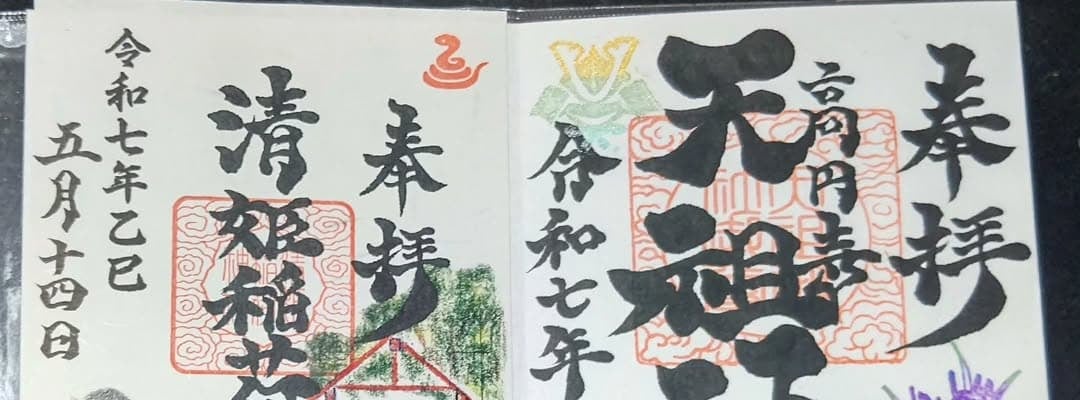 奉拝
高円寺
天祖
令和七年
奉拝
清姫稲荷
令和七年乙巳
五月十四日